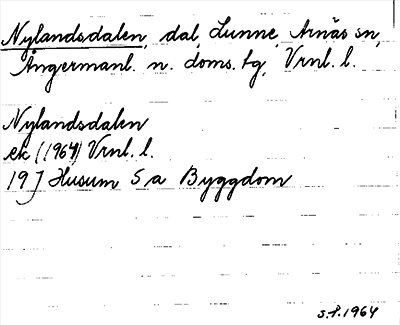 Nylandsdalen, dal, Lunne, Arnäs sn,
Ångermanl. n. doms.tg, Vrnl. l.
Nylandsdalen
ek (1964) Vrnl. l.
19J Husum 5 a Byggdom
s.f.1964